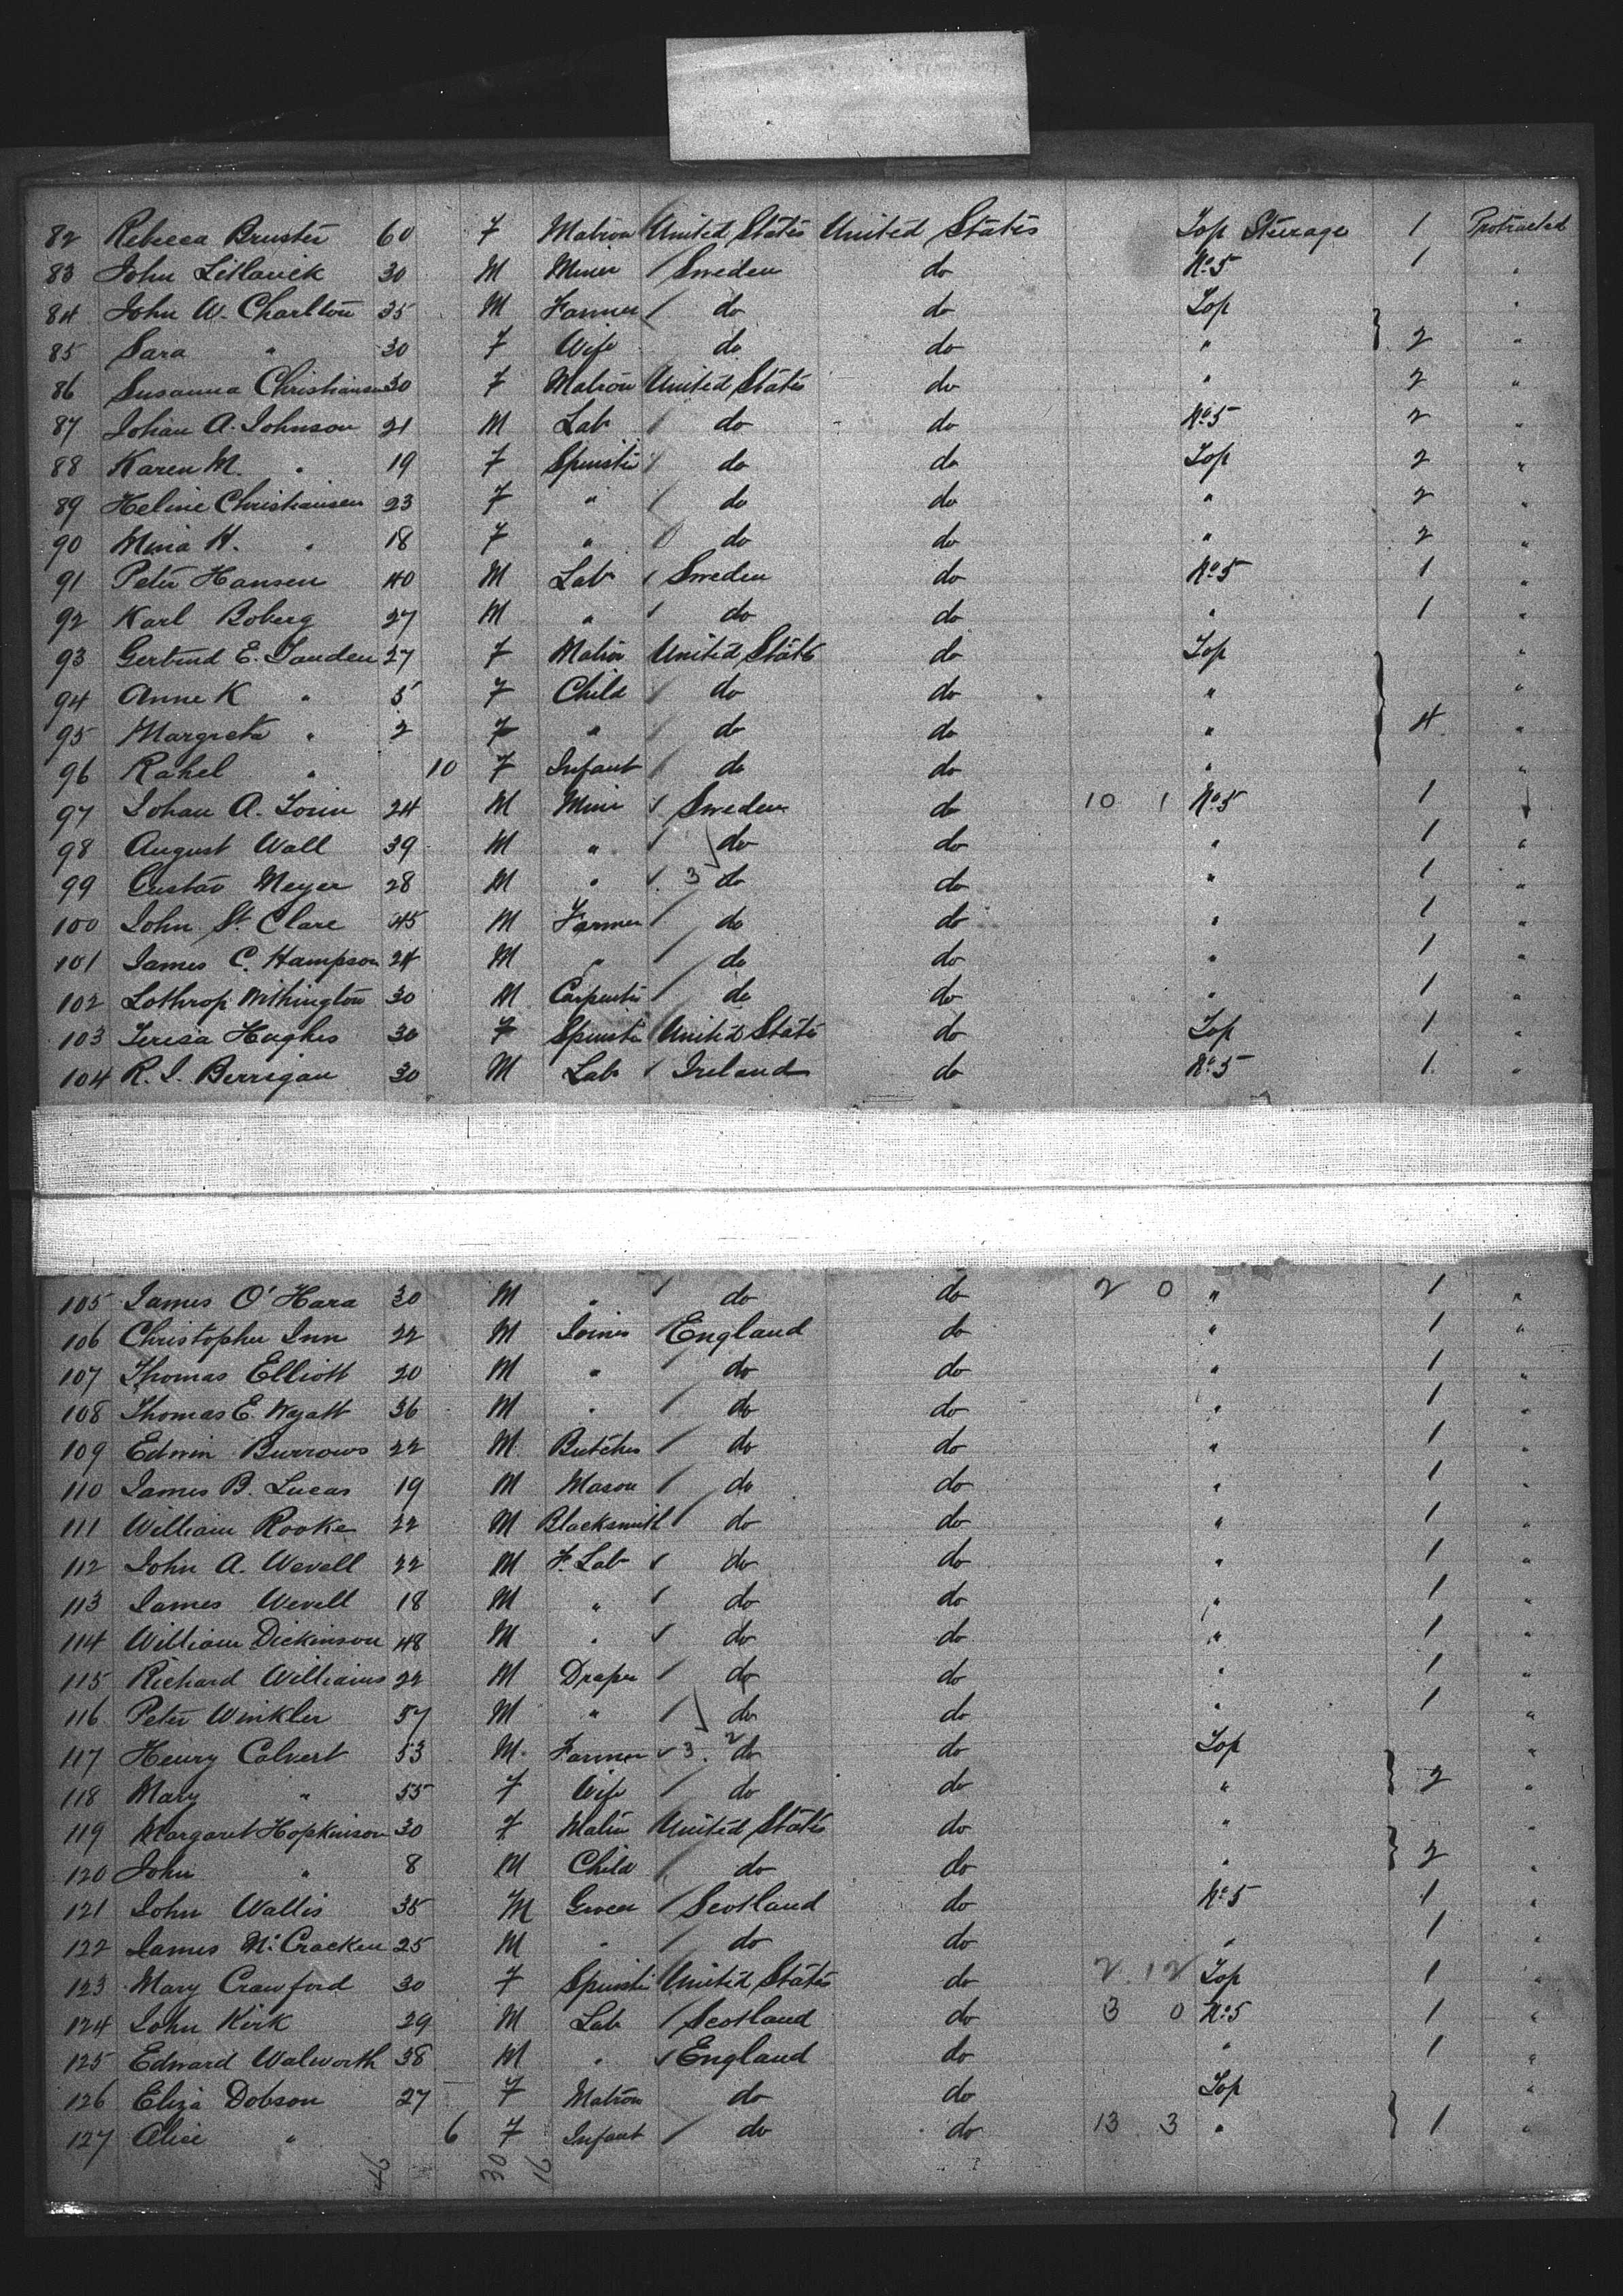 82 Rebecca Bruster 60 F Matron United States United States Top Steerage 1 Protracted
83 John 30 M Miner / Sweden do No 5 1 "
84 John W. Charlton 35 M Farmer / do do Top "
85 Sara " 30 F Wife do do " } 2 "
86 Susanna Christiansen 30 F Matron United States do " 2 "
87 Johan A. Johnson 21 M Lab / do do No 5 2 "
88 Karen M. " 19 F Spinster / do do Top 2 "
89 Heline Christiansen 23 F " / do do " 2 "
90 Mina H. " 18 F " / do do " 2 "
91 Peter Hansen 40 M Lab / Sweden do No 5 1 "
92 Karl Boberg 27 M " / do do " 1 "
93 Gertrud E. 27 F Matron United States do Top "
94 Anne K " 5 F Child / do do " "
95 Margreta " 2 F " / do do " } 4 "
96 Rahel " 10 F Infant / do do " "
97 Johan A. 24 M Miner / Sweden do 10 1 No 5 1 "
98 August Wall 39 M " / do do " 1 "
99 Gustav Meyer 28 M " / 3 do do " 1 "
100 John St. Clare 45 M Farmer / do do " 1 "
101 James C. Hampson 24 M " / do do " 1 "
102 Lothrop Withington 30 M Carpenter / do do " 1 "
103 Teresa Hughes 30 F Spinster United States do Top 1 "
104 R. J. Berrigan 30 M Lab / Ireland do No 5 1 "
105 James O'Hara 30 M " / do do 2 0 " 1 "
106 Christopher Inn 22 M Joiner / England do " 1 "
107 Thomas Elliott 20 M " / do do " 1 "
108 Thomas E. Wyatt 36 M " / do do " 1 "
109 Edwin Burrows 22 M Butcher / do do " 1 "
110 James B. Lucas 19 M Mason / do do " 1 "
111 William Rooke 22 M Blacksmith / do do " 1 "
112 John A. Wevell 22 M F. Lab / do do " 1 "
113 James Wevell 18 M " / do do " 1 "
114 William Dickinson 48 M " / do do " 1 "
115 Richard Williams 22 M Draper / do do " 1 "
116 Peter Winkler 57 M " / do do " 1 "
117 Henry Calvert 53 M Farmer / 3. 2 do do Top "
118 Mary " 55 F Wife / do do " } 2 "
119 Margaret Hopkinson 30 F Matron United States do " "
120 John " 8 M Child / do do " } 2 "
121 John Wallis 35 M Grocer / Scotland do No 5 1 "
122 James McCracken 25 M " / do do " 1 "
123 Mary Crawford 30 F Spinster United States do 2 12 Top 1 "
124 John Kirk 29 M Lab / Scotland do 3 0 No 5 1 "
125 Edward Walworth 38 M " / England do " 1 "
126 Eliza Dobson 27 F Matron do do Top "
127 Alice " 6 F Infant / do do 13 3 " } 1 "
46 30 16